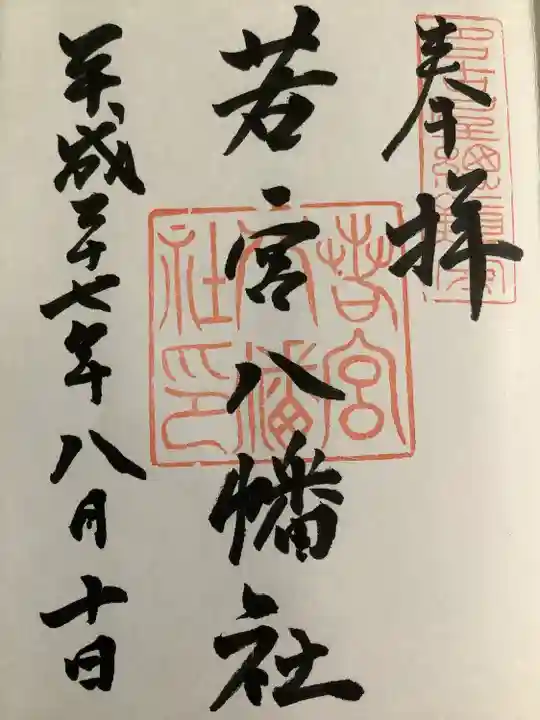 奉拝
若宮八幡社
平成二十七年八月十日
若宮八幡社印